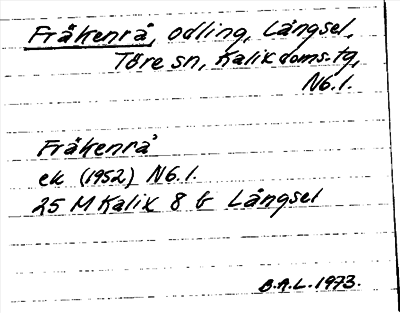 Fräkenrå, odling, Långsel,
Töre sn, Kalix doms.tg,
Nb.l.
Fräkenrå
ek (1952) Nb.l.
25 M Kalix 8 b Långsel
B.A.L. 1973.